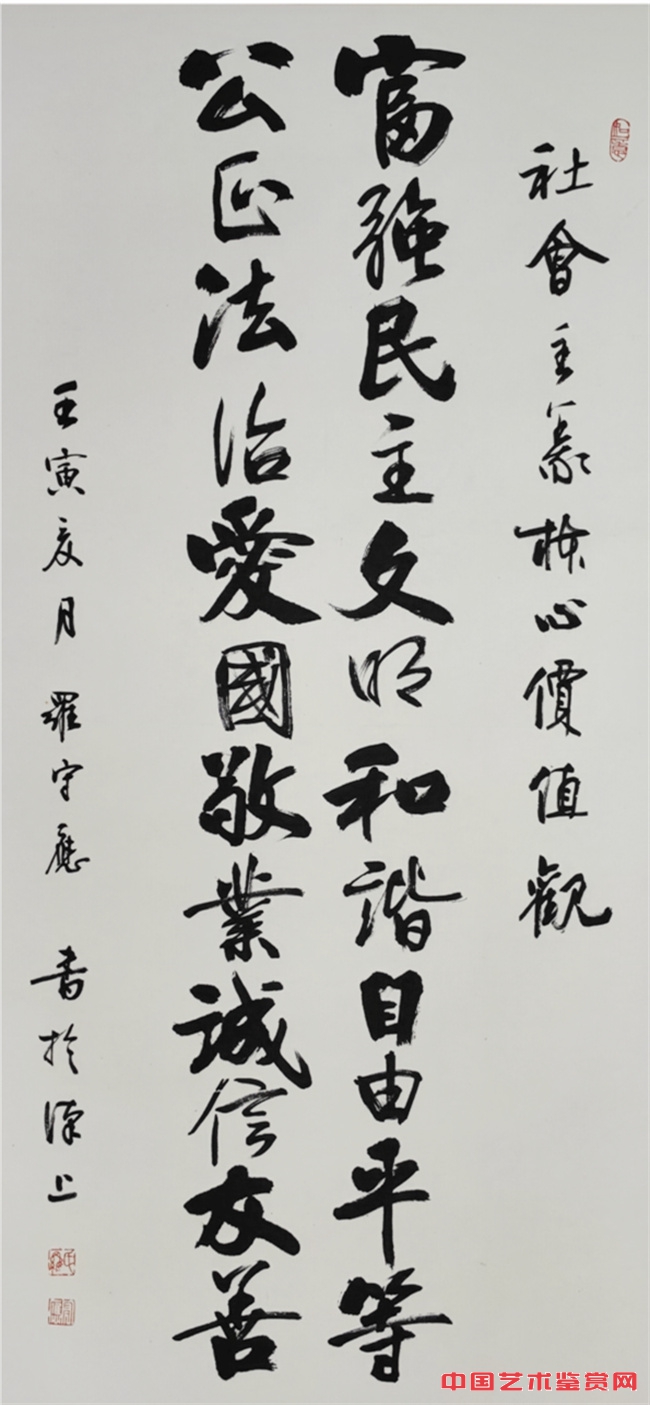 社會主義核心價值觀
富強民主文明和諧自由平等
公正法治愛國敬業誠信友善
壬寅夏月 羅守應 書於漢上
中国艺术鉴赏网